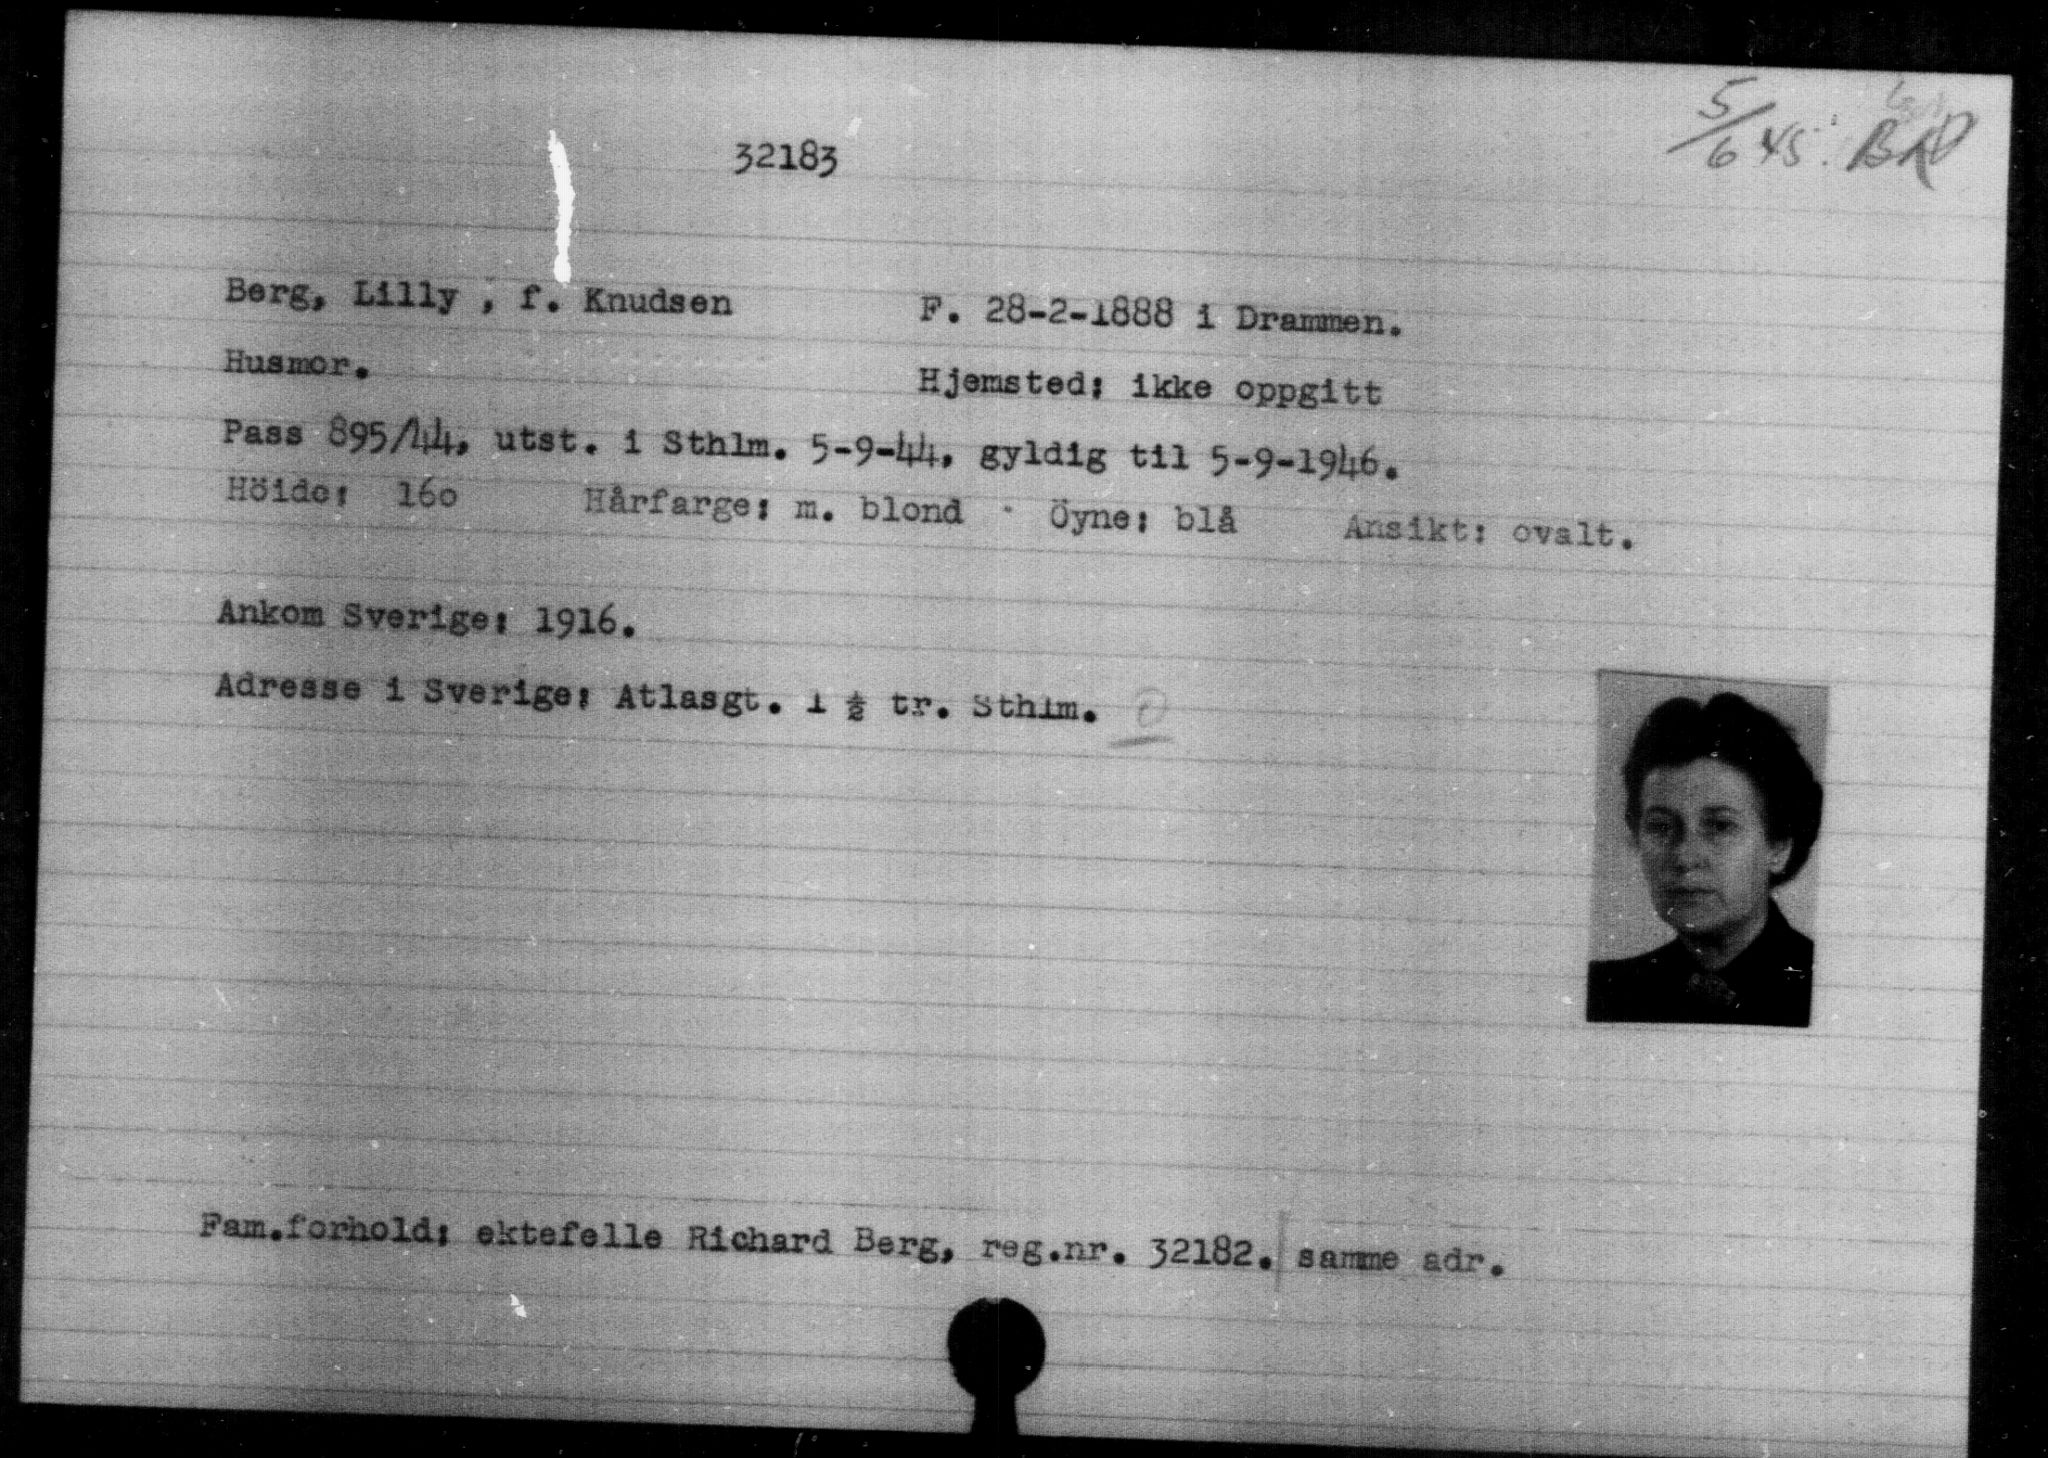 5/6 45.
32183
Berg, Lilly , f. Knudsen F. 28-2-1888 i Drammen.
Husmor. Hjemsted: ikke oppgitt
Pass 895/44, utst. i Sthlm. 5-9-44, gyldig til 5-9-1946.
Höide: 16o Hårfarge: m. blond Öyne: blå Ansikt: ovalt.
Ankom Sverige: 1916.
Adresse i Sverige: Atlasgt. 1 ½ tr. Sthlm.
Fam.forhold: ektefelle Richard Berg, reg.nr. 32182. samme adr.